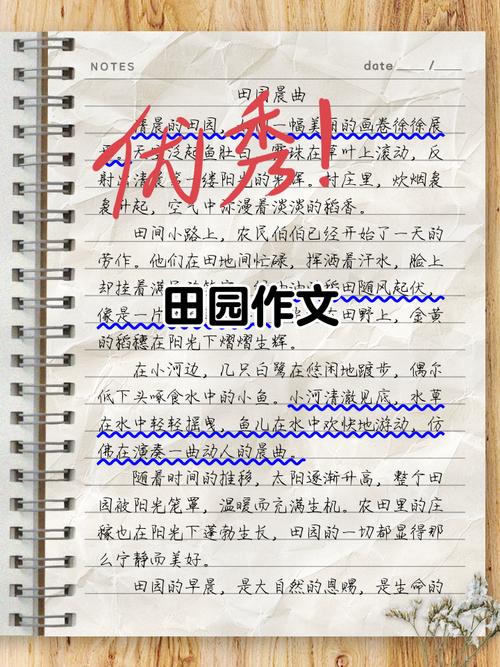 NOTES
date /
田园晨曲
清晨的田园,一幅美丽的画卷徐徐展
天 泛起鱼肚白 露珠在草叶上滚动,反
射 清晨第一缕阳光的光辉。村庄里,炊烟袅
袅升起,空气中弥漫着淡淡的稻香。
优秀!
田间小路上,农民伯伯已经开始了一天的
劳作。他们在田地间忙碌,挥洒着汗水,脸上
却挂着满 稻田随风起伏,
像是一片 在田野上,金黄
田园作文
的稻穗在阳光下熠熠生辉。
在小河边,几只白鹭在悠闲地踱步,偶尔
低下头啄食水中的小鱼。小河清澈见底,水草
在水中轻轻摇曳,鱼儿在水中欢快地游动,仿
佛在演奏一曲动人的晨曲。
随着时间的推移,太阳逐渐升高,整个田
园被阳光笼罩,温暖而充满生机。农田里的庄
稼也在阳光下蓬勃生长,田园的一切都显得那
么宁静而美好。
田园的早晨,是大自然的恩赐,是生命的